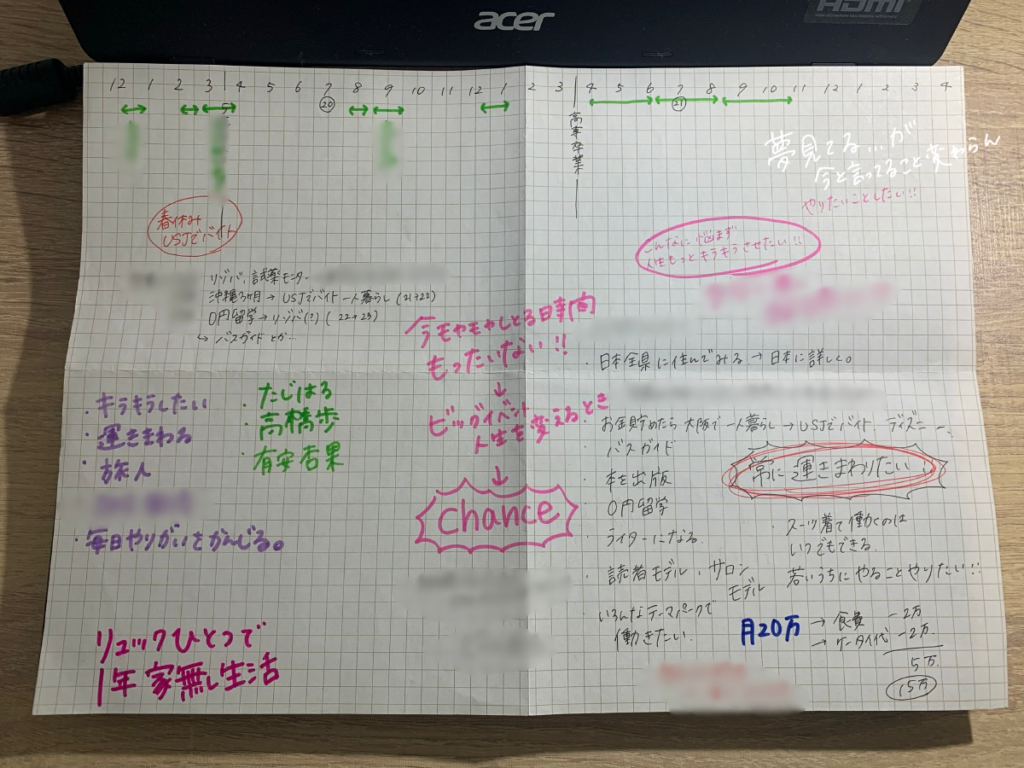 acer
HDMI
12 1 2 3 4 5 6 7 8 9 10 11 12 1 2 3 4 5 6 7 8 9 10 11 12 1 2 3 4
⑳
㉑
高専卒業
夢見てる…が
今と言ってること変わらん
やりたいことしたい!!
春休み
USJでバイト
こんなに悩まず
人生もっとキラキラさせたい!!
リゾバ、試薬モニター
沖縄3ヶ月→USJでバイト 一人暮らし (21→22)
0円留学→リゾバ(?) (22→23)
↳ バスガイドとか…
今モヤモヤしとる時間
もったいない!!
↓
ビッグイベント
人生を変えるとき
↓
chance
・キラキラしたい
・運きまわる
・旅人
・毎日やりがいをかんじる。
・たじはる
・高橋歩
・有安杏果
リュックひとつで
1年家無し生活
・日本全県に住んでみる → 日本に詳しく。
・お金貯めたら 大阪で一人暮らし → USJでバイト、ディズニー、
・バスガイド
・本を出版
・0円留学
・ライターになる
・読者モデル、サロンモデル
・いろんなテーマパークで
働きたい
常に運きまわりたい
・スーツ着て働くのは
いつでもできる
若いうちにやることやりたい!!
月20万 → 食費 -2万
→ケータイ代 -2万
5万
15万